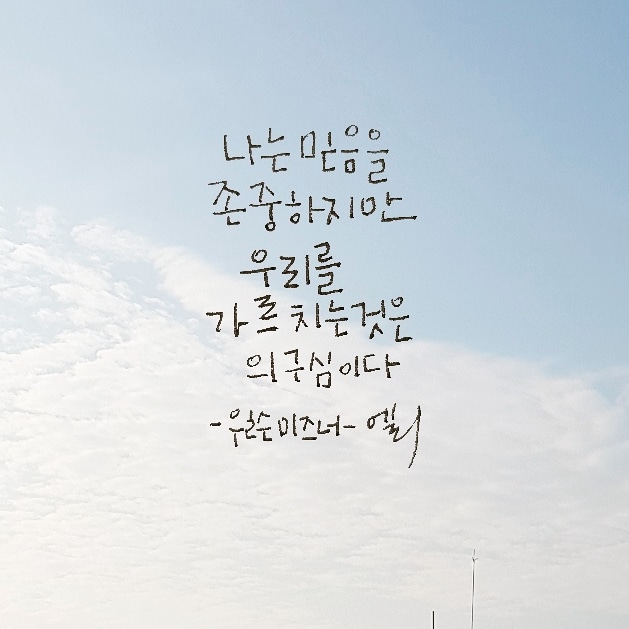 나는 믿음을
존중하지만
우리를
가르치는것은
의구심이다
-윌슨미즈너- 엘리